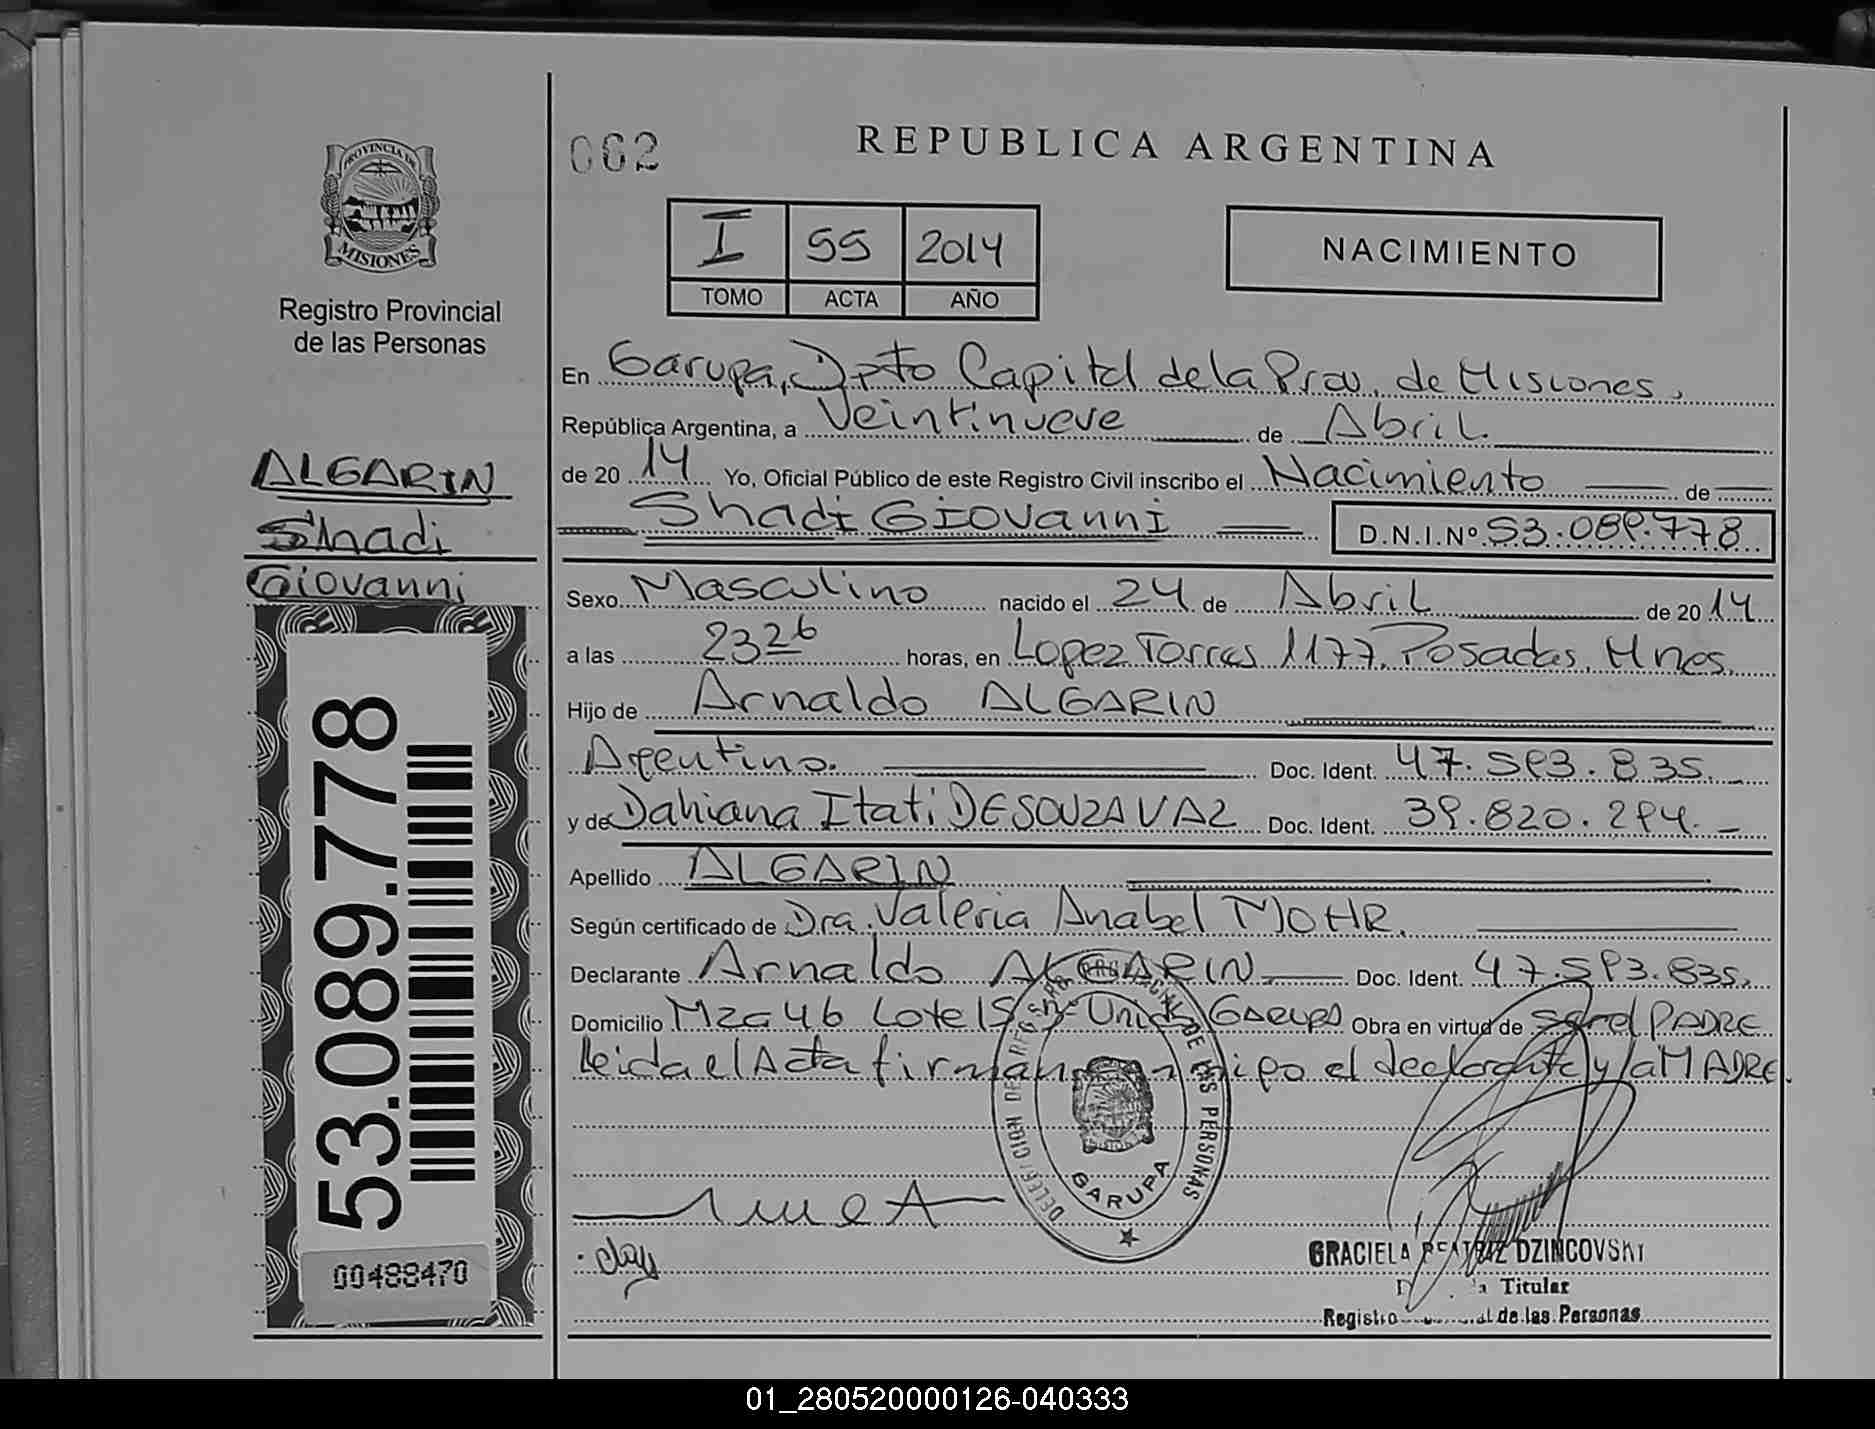 062
REPUBLICA ARGENTINA
PROVINCIA DE
MISIONES
Registro Provincial
de las Personas
I 55 2014
TOMO ACTA AÑO
NACIMIENTO
En Garupa, Dpto Capital de la Prov. de Misiones,
República Argentina, a Veintinueve de Abril
de 2014 Yo, Oficial Público de este Registro Civil inscribo el Nacimiento de
Shadi Giovanni D.N.I.Nº 53.089.778
ALGARIN
Shadi
Giovanni
Sexo Masculino nacido el 24 de Abril de 2014
a las 23 26 horas, en Lopez Torres 1177, Posadas, Mnes.
Hijo de Arnaldo ALGARIN
Argentino. Doc. Ident. 47.593.835.
y de Dahiana Itati DE SOUZA VAZ Doc. Ident. 39.820.294.
Apellido ALGARIN
Según certificado de Dra. Valeria Anabel MOHR.
Declarante Arnaldo ALGARIN Doc. Ident. 47.593.835.
Domicilio Mza 46 Lote Garupa Obra en virtud de ser el PADRE
Leida el Acta firman el declarante y la MADRE.
53.089.778
00488470
DELEGACION DE REGISTRO PROVINCIAL DE LAS PERSONAS
GARUPA
GRACIELA BEATRIZ DZINCOVSKI
Titular
Registro de las Personas
01_280520000126-040333